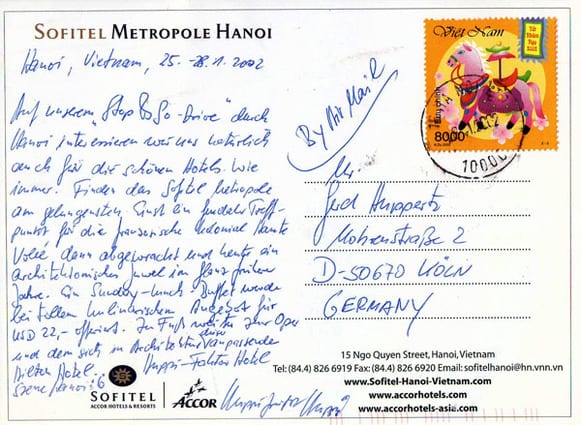 SOFITEL METROPOLE HANOI
Hanoi, Vietnam, 25.-28.1.2002
Auf unserem "Stop & Go-Drive" durch
Hanoi interessieren wir uns natürlich
auch für die schönen Hotels. Wie
immer. Finden das Sofitel Metropole
am gelungensten. Einst ein feudaler Treff-
punkt für die französische Kolonial Haute
Volée dann abgewrackt und heute ein
architektonisches Juwel im Glanz früherer
Jahre. Ein Sunday-Lunch Buffet wurde
bei tollem kulinarischem Angebot für
USD 22,- offeriert. Zu Fuß weiter zur Oper
und dem sich in Architektur anpassenden
Hotel
By Air Mail
Viet Nam
Bưu chính
8000đ
2002
10000
Mr.
Gerd Huppertz
Mohrenstraße 2
D-50670 KÖLN
GERMANY
15 Ngo Quyen Street, Hanoi, Vietnam
Tel: (84.4) 826 6919 Fax: (84.4) 826 6920 Email: sofitelhanoi@hn.vnn.vn
www.Sofitel-Hanoi-Vietnam.com
www.accorhotels.com
www.accorhotels-asia.com
SOFITEL
ACCOR HOTELS & RESORTS
ACCOR